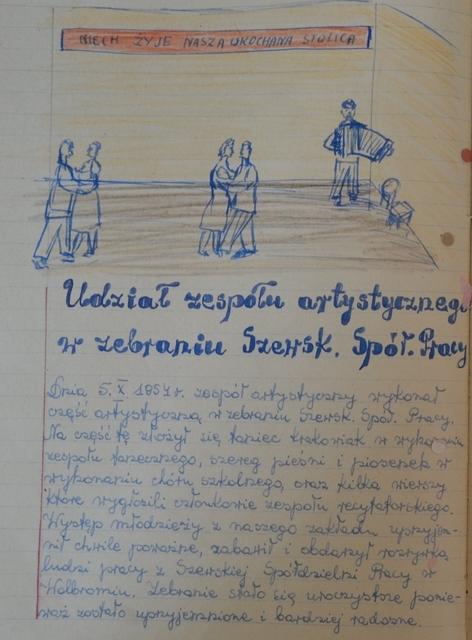 NIECH ŻYJE NASZA UKOCHANA STOLICA
Udział zespołu artystycznego
w zebraniu Szewsk. Spół. Pracy
Dnia 5. X 1957 r. zespół artystyczny wykonał
część artystyczną w zebraniu Szewsk. Spół. Pracy.
Na część tę złożył się taniec krakowiak w wykonaniu
zespołu tanecznego, szereg pieśni i piosenek w
wykonaniu chóru szkolnego, oraz kilka wierszy
które wygłosili członkowie zespołu recytatorskiego.
Występ młodzieży z naszego zakładu uprzyjem-
nił chwile poważne, zabawił i obdarzył rozrywką
ludzi pracy z Szewskiej Spółdzielni Pracy w
Wolbromiu. Zebranie stało się uroczystsze ponie-
waż zostało uprzyjemnione i bardziej radosne.